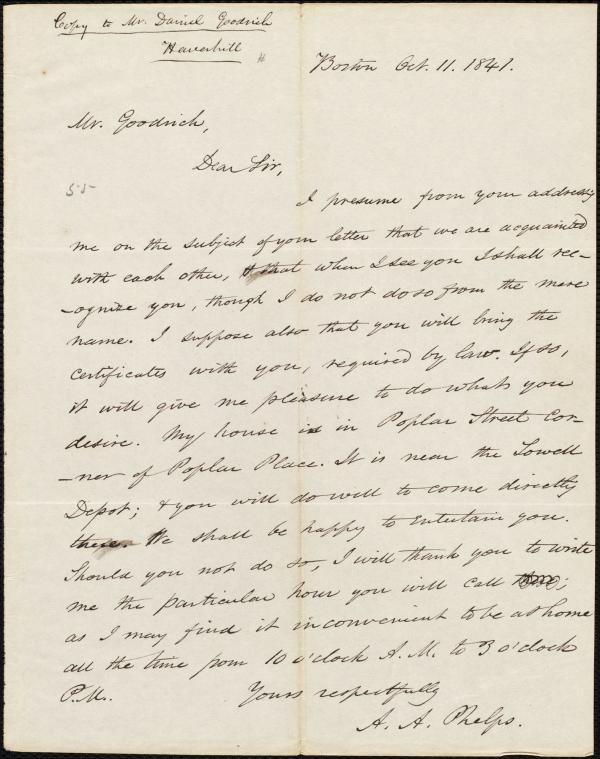 Copy to Mr. Daniel Goodrich
Haverhill
Boston Oct. 11. 1841.
Mr. Goodrich,
Dear Sir,
55
I presume from your addressing
me on the subject of your letter that we are acquainted
with each other, & that when I see you I shall rec-
-ognize you, though I do not do so from the mere
name. I suppose also that you will bring the
certificates with you, required by law. If so,
it will give me pleasure to do what you
desire. My house is in Poplar Street Cor-
-ner of Poplar Place. It is near the Lowell
Depot; & you will do well to come directly
there. We shall be happy to entertain you.
Should you not do so, I will thank you to write
me the particular hour you will call;
as I may find it inconvenient to be at home
all the time from 10 o'clock A.M. to 3 o'clock
P.M.. Yours respectfully
A. A. Phelps.